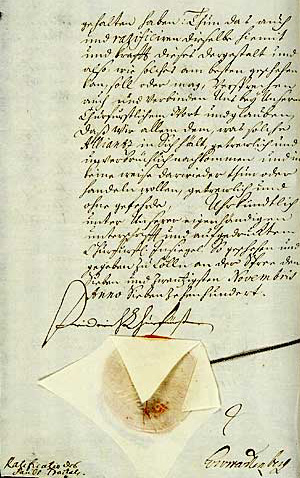 gehalten haben. Thun das auch
und ratificiren dieselbe hiemit
und krafft dieses dergestalt und
also wie solches am besten geschehen
kan, soll oder mag, Versprechen
auch und verbinden Uns bey Unserm
Churfürstlichen Wort und glauben,
daß Wir allem dem, was solche
Alliantz in sich hält, getreulich und
unverbrüchlich nachkommen und in
keine weise darwieder thun oder
handeln wollen, getreulich und
ohne gefehrde. Uhrkundtlich
unter Unserer eigenhändigen
unterschrifft und auffgedrucktem
Churfürstl. Insiegel. So geschehen und
gegeben zu Cölln an der Spree den
Sieben und zwantzigsten Novembris
Anno Siebenzehenhundert.
Friderich Churfürst
Ratificatio des